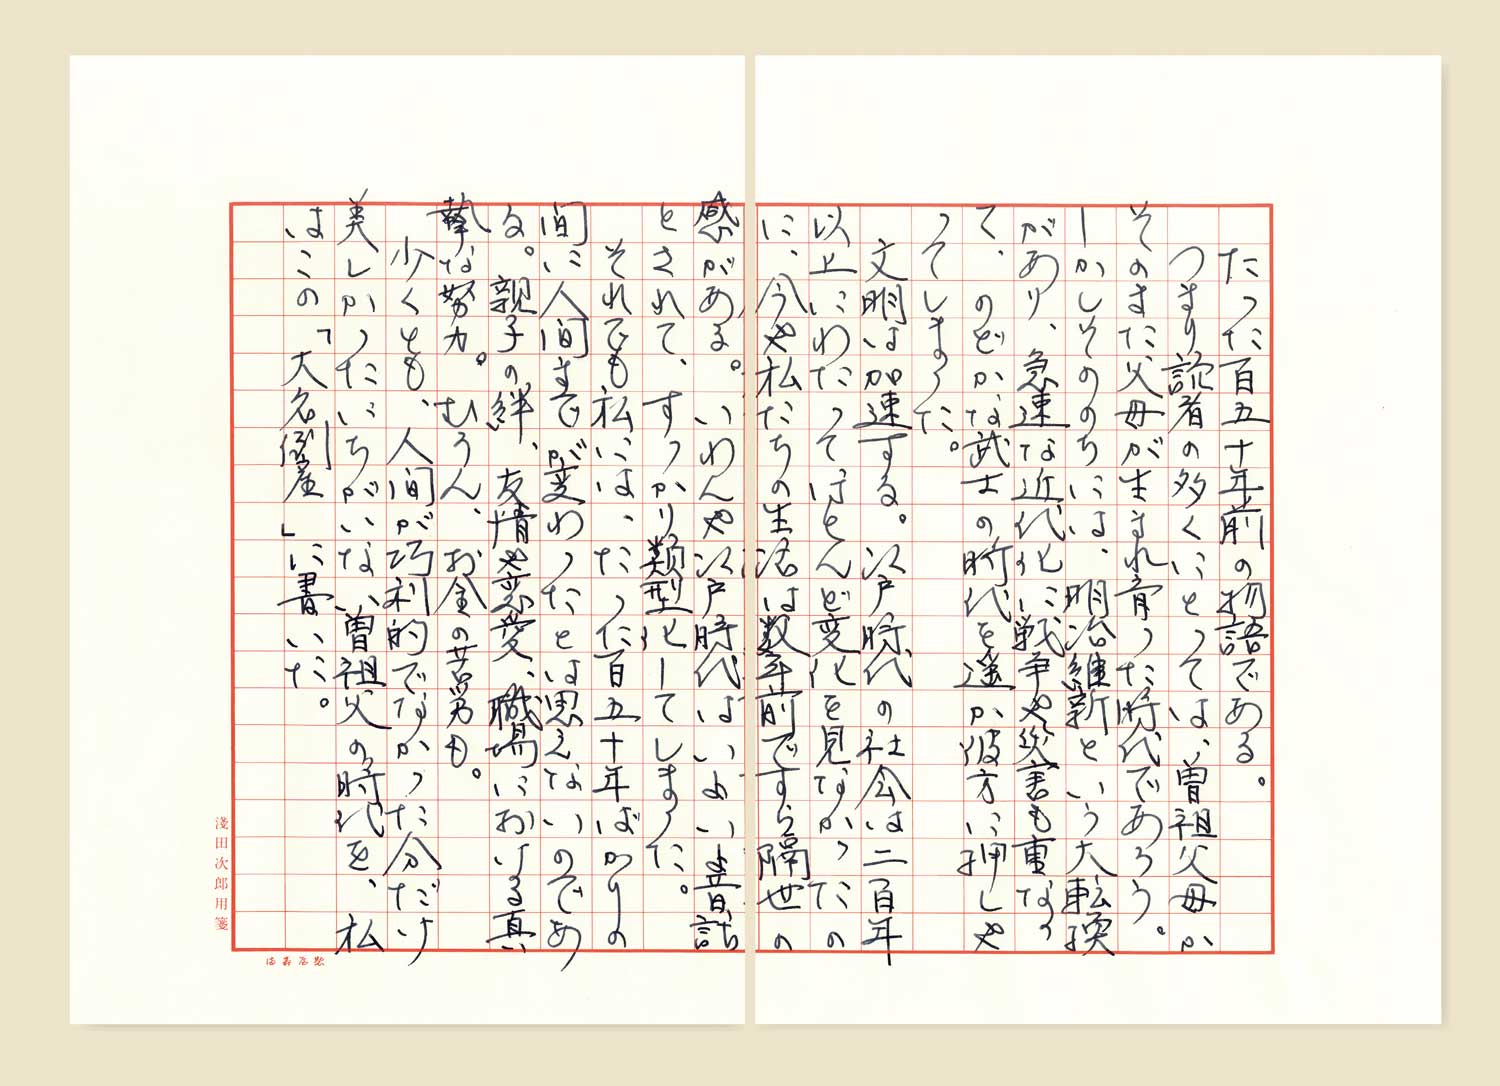 たった百五十年前の物語である。
つまり読者の多くにとっては、曽祖父母か
そのまた父母が生まれ育った時代であろう。
しかしそののちには、明治維新という大転換
があり、急速な近代化に戦争や災害も重なっ
て、のどかな武士の時代を遥か彼方に押しや
ってしまった。
文明は加速する。江戸時代の社会は二百年
以上にわたってほとんど変化を見なかったの
に、今や私たちの生活は数年前ですら隔世の
感がある。いわんや江戸時代はいよいよ昔話
とされて、すっかり類型化してしまった。
それでも私には、たった百五十年ばかりの
間に人間までが変わったとは思えないのであ
る。親子の絆、友情や恋愛、職場における真
摯な努力。むろん、お金の苦労も。
少くとも、人間が巧利的でなかった分だけ
美しかったにちがいない曽祖父の時代を、私
はこの「大名倒産」に書いた。
淺田次郎用箋